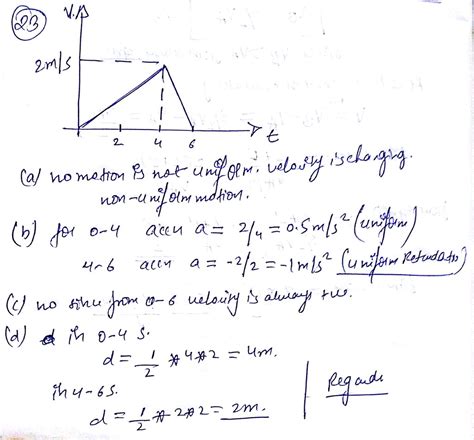 23
V.
2m/s
2 4 6 t
(a) no motion is not uniform. velocity is changing.
non-uniform motion.
(b) for 0-4 accn a = 2/4 = 0.5m/s² (uniform)
4-6 accn a = -2/2 = -1m/s² (uniform Retardatn)
(c) no since from 0-6 velocity is always +ve.
(d) in 0-4 s.
d = 1/2 * 4 * 2 = 4m.
in 4-6s.
d = 1/2 * 2 * 2 = 2m.
Regards